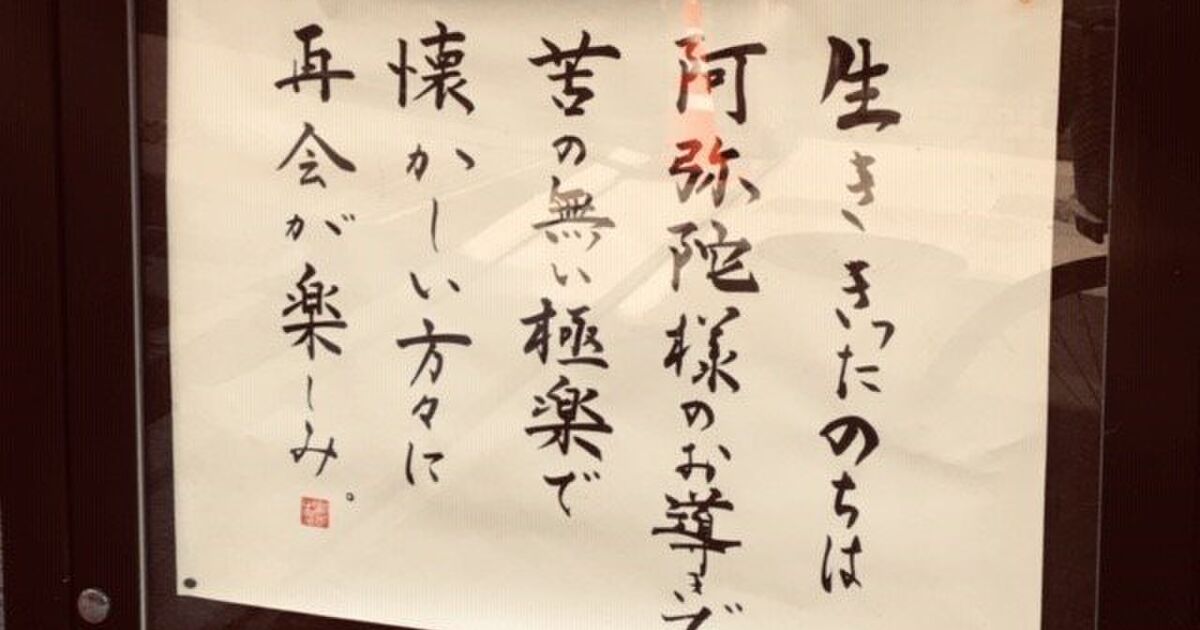 生ききったのちは
阿弥陀様のお導きで
苦の無い極楽で
懐かしい方々に
再会が楽しみ。